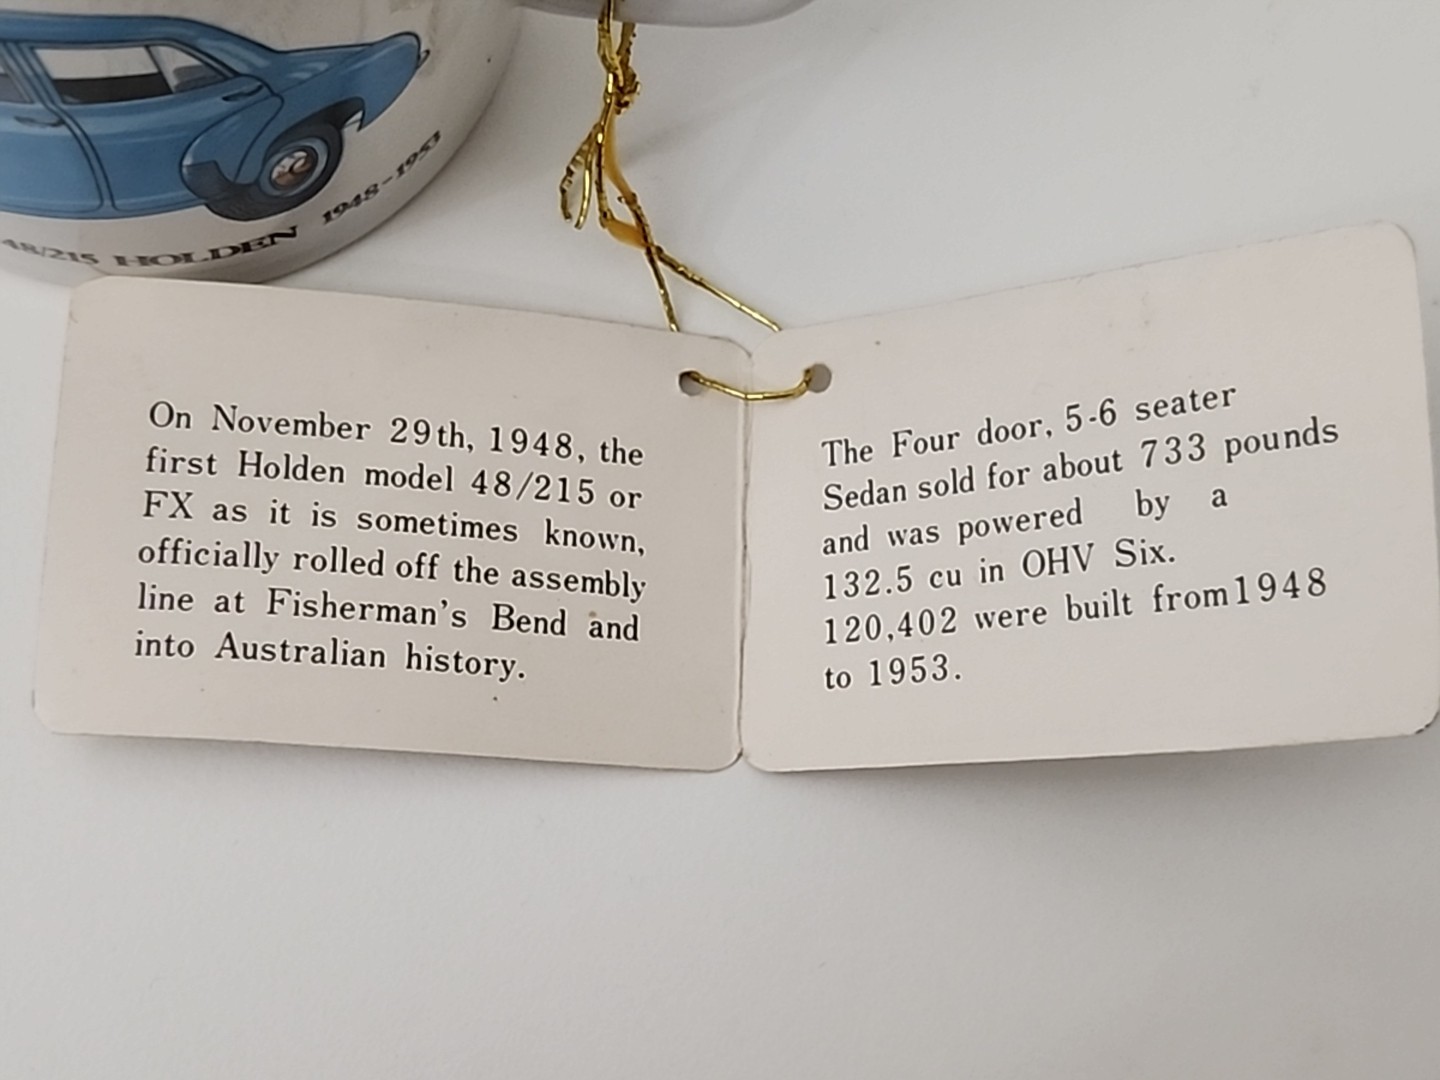 48/215 HOLDEN 1948-1953
On November 29th, 1948, the
first Holden model 48/215 or
FX as it is sometimes known,
officially rolled off the assembly
line at Fisherman's Bend and
into Australian history.
The Four door, 5-6 seater
Sedan sold for about 733 pounds
and was powered by a
132.5 cu in OHV Six.
120,402 were built from1948
to 1953.